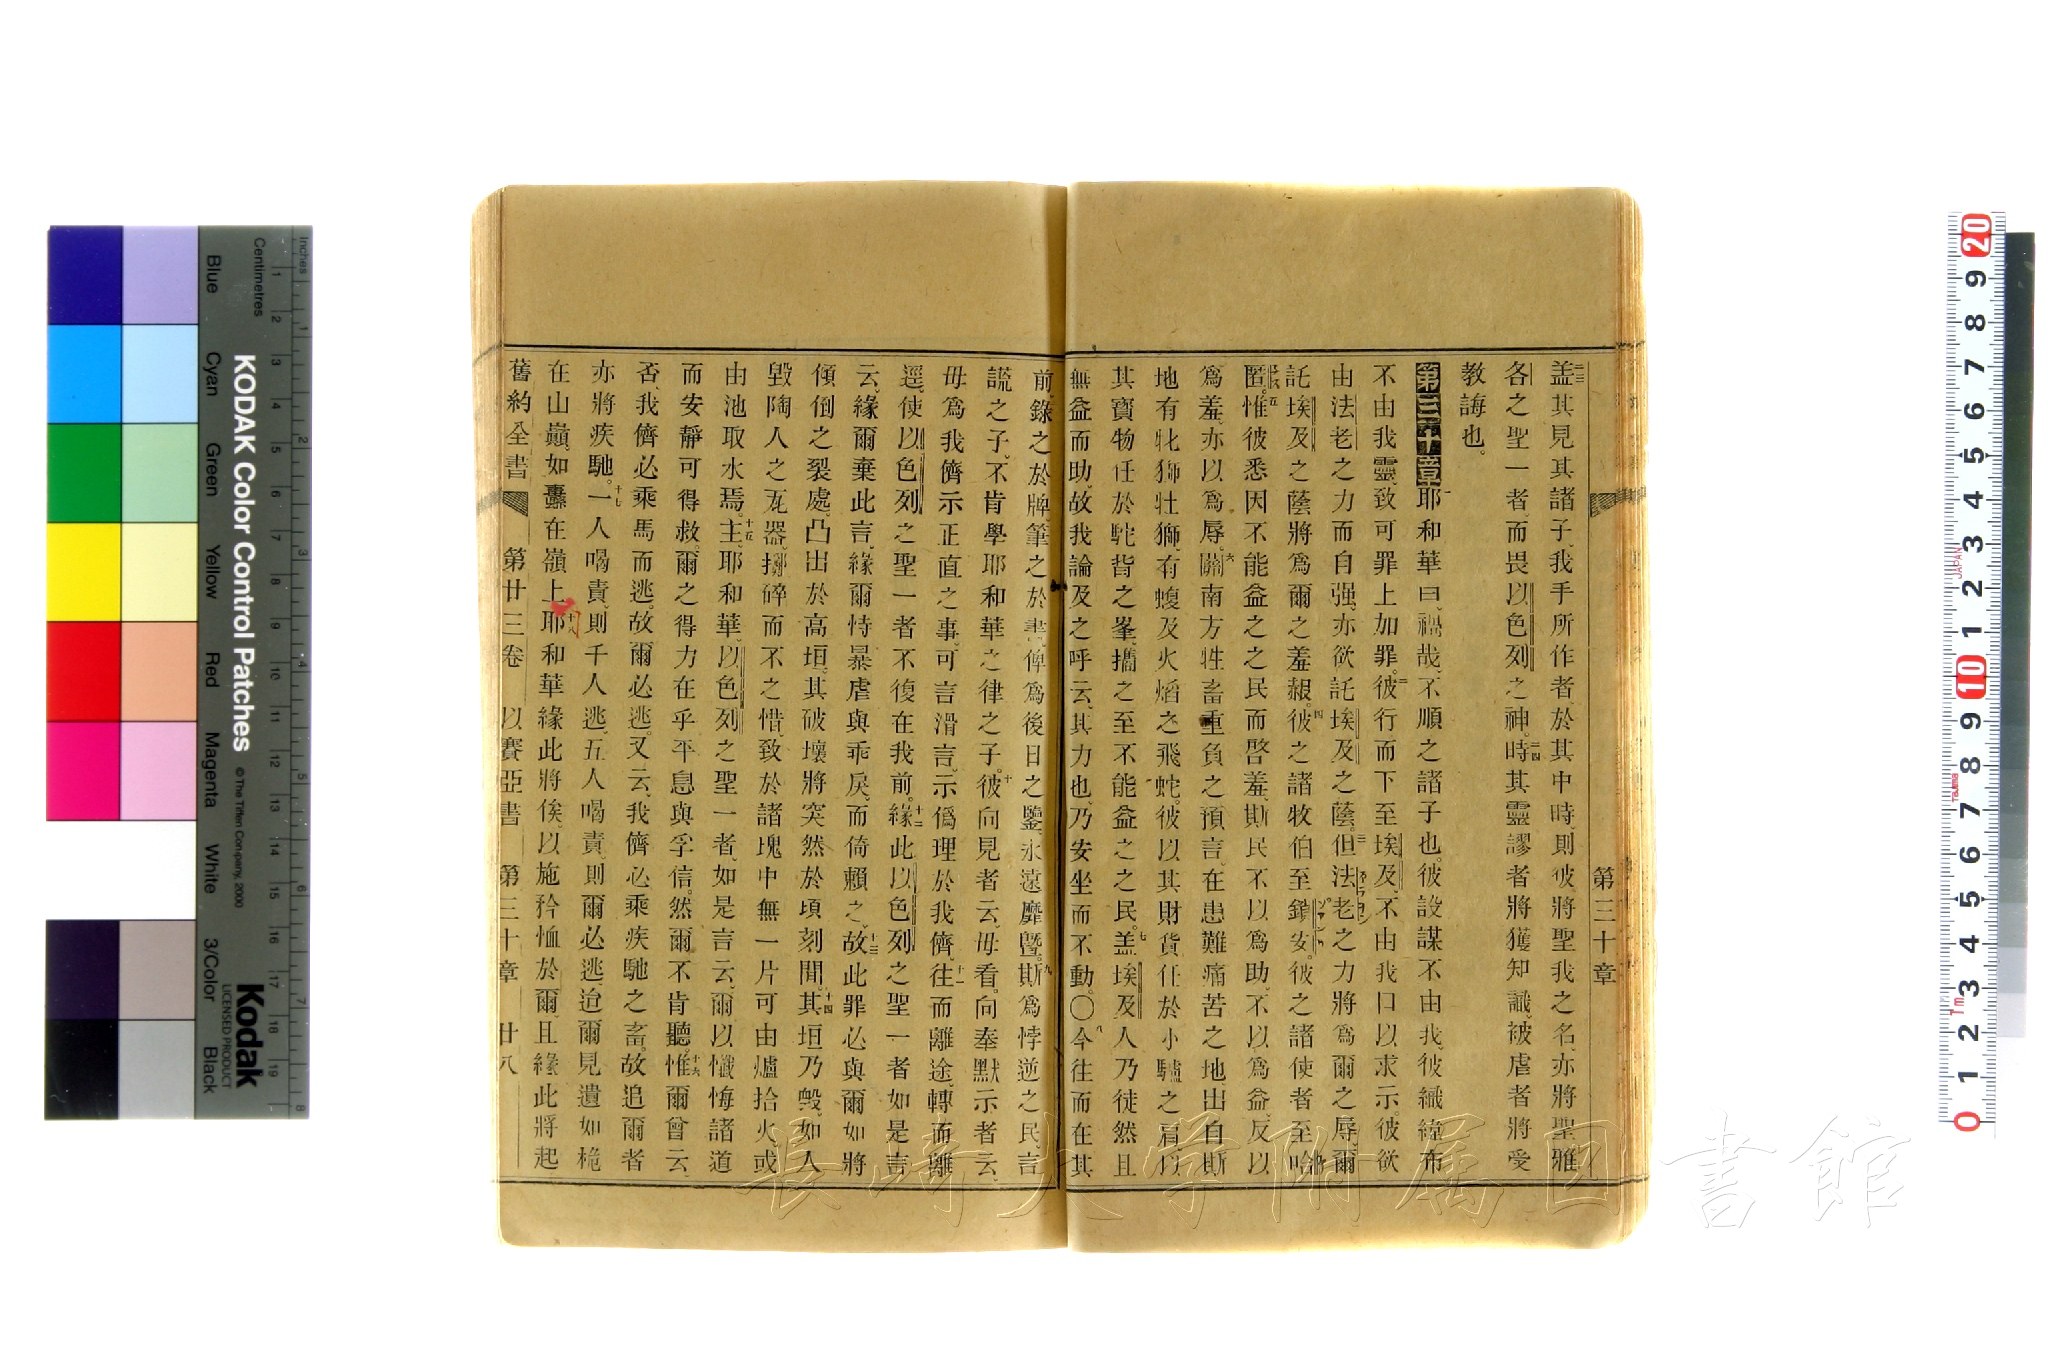 盖其見其諸子、我手所作者於其中時、則彼將聖我之名、亦將聖雅
各之聖一者、而畏以色列之神。時其靈謬者將獲知識、被虐者將受
教誨也。
第三十章 耶和華曰、禍哉、不順之諸子也。彼設謀不由我、彼織緯布
不由我靈、致可罪上加罪。彼行而下至埃及、不由我口以求示。彼欲
由法老之力而自强、亦欲託埃及之蔭。但法老之力將爲爾之辱、爾
託埃及之蔭將爲爾之羞赧。彼之諸牧伯至鎖安。彼之諸使者至哈
匿。惟彼悉因不能益之之民而啓羞、斯民不以爲助、不以爲益、反以
爲羞、亦以爲辱。關南方牲畜重負之預言、在患難痛苦之地、出自斯
地有牝獅牡獅、有蝮及火焰之飛蛇。彼以其財貨任於小驢之肩、以
其寶物任於駝背之峯、攜之至不能益之之民。盖埃及人乃徒然且
無益而助、故我論及之呼云、其力也、乃安坐而不動。〇今往而在其
前、錄之於牌、筆之於書、俾爲後日之鑒、永遠靡曁。斯爲悖逆之民、言
謊之子、不肯學耶和華之律之子。彼向見者云、毋看。向奉默示者云、
毋爲我儕示正直之事、可言滑言、示僞理於我儕、往而離途、轉而離
逕、使以色列之聖一者不復在我前。緣此以色列之聖一者如是言
云、緣爾棄此言、緣爾恃暴虐與乖戾、而倚賴之、故此罪必與爾如將
傾倒之裂處。凸出於高垣、其破壞將突然於頃刻間。其垣乃毁、如人
毀陶人之瓦器、擲碎而不之惜、致於諸塊中無一片可由爐拾火、或
由池取水焉。主、耶和華、以色列之聖一者、如是言云、爾以懺悔諸道
而安靜可得救。爾之得力在乎平息與孚信、然爾不肯聽。惟爾曾云、
否、我儕必乘馬而逃。故爾必逃。又云、我儕必乘疾馳之畜。故追爾者
亦將疾馳。一人喝責、則千人逃、五人喝責、則爾必逃、迨爾見遺如桅
在山巔。如纛在嶺上。耶和華緣此將俟、以施矜恤於爾、且緣此將起
舊約全書 第廿三卷 以賽亞書 第三十章 廿八
第三十章
長崎大学附属図書館
KODAK Color Control Patches
©The Tiffen Company, 2000
Kodak
LICENSED PRODUCT
Inches
Centimetres
Blue Cyan Green Yellow Red Magenta White 3/Color Black
JAPAN